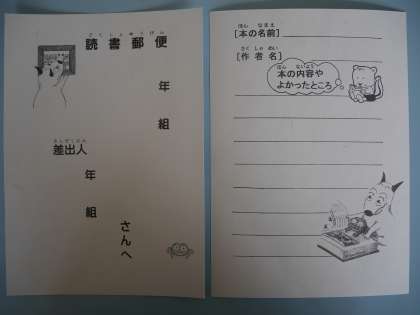 どくしょゆうびん
読書郵便
年
組
さんへ
さしだしにん
差出人
年
組
ほん なまえ
[本の名前]
さくしゃめい
[作者名]
ほん ないよう
本の内容や
よかったところ